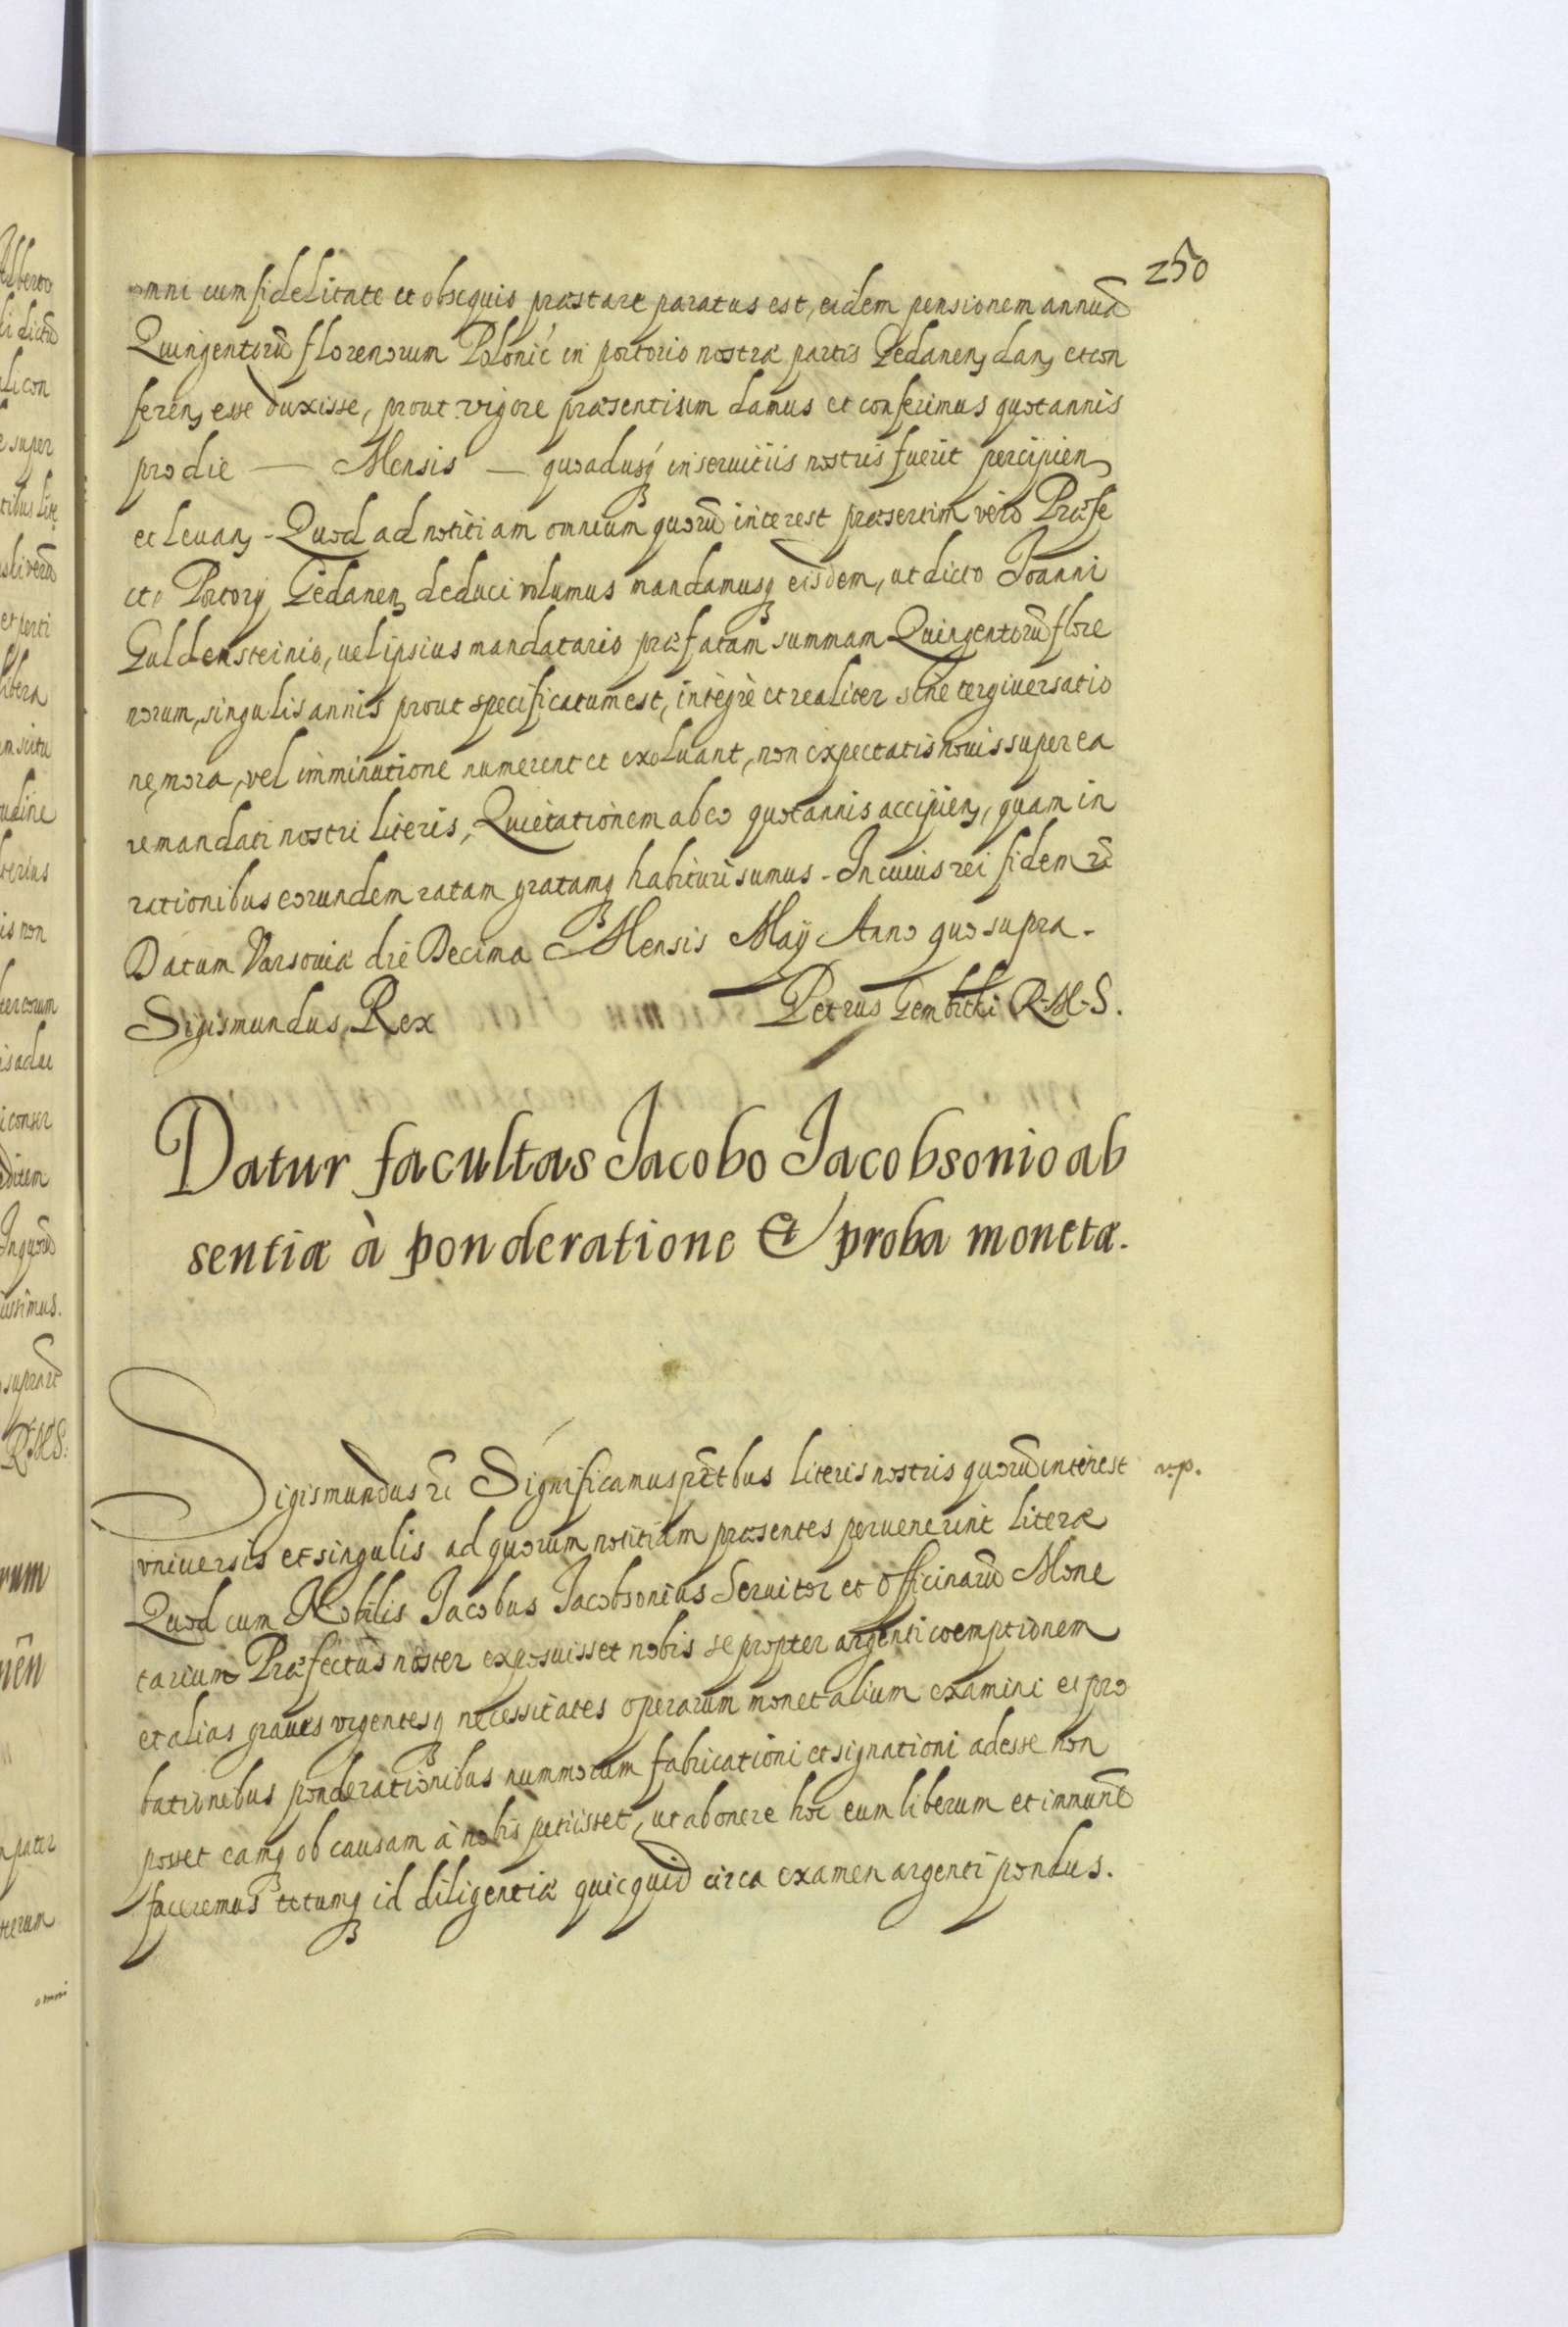 250
omni cum fidelitate et obsequis præstare paratus est, eidem pensionem annuã
Quingentorũ florenorum Polonic in portorio nostræ partis Gedanen, dan, et con
feren, esse duxisse, prout vigore præsentium damus et conferimus quotannis
pro die — Mensis — quoadusq in seruitiis nostris fuerit percipien,
et leuan, - Quod ad notitiam omnium quorũ interest præsertim vero Præfe
cto Portorij Gedanen, deduci volumus mandamusq eisdem, ut dicto Joanni
Guldensteinio, uel ipsius mandatario præfatam summam Quingentorũ flore
norum, singulis annis prout specificatum est, integrè et realiter sine tergiuersatio
ne, mora, vel imminutione numerent et exoluant, non expectatis nouis super ea
re mandati nostri literis, Quietationem ab eo quotannis accipien, quam in
rationibus eorundem ratam gratamq habituri sumus - In cuius rei fidem rc̃
Datum Varsouiæ die Decima Mensis Maij Anno quo supra.
Sigismundus Rex Petrus Gembicki R-M-S.
Datur facultas Jacobo Jacobsonio ab
sentiæ à ponderatione et proba monetæ.
Sigismundus rc̃ Significamus prñtbus literis nostris quorũ interest
vniuersis et singulis ad quorum notitiam præsentes peruenerint literæ
Quod cum Nobilis Jacobus Jacobsonius Seruitor et officinarũ Mone
tarium Præfectus noster exposuisset nobis se propter argenti coemptionem
et alias graues vrgentesq necessitates operarum monetalium examini et pro
bationibus ponderationibus nummorum fabricationi et signationi adesse non
posset eamq ob causam à nobis petiisset, ut ab onere hoc eum liberum et immunẽ
faceremus totumq id diligentiæ quicquid circa examen argenti pondus.
v.p.